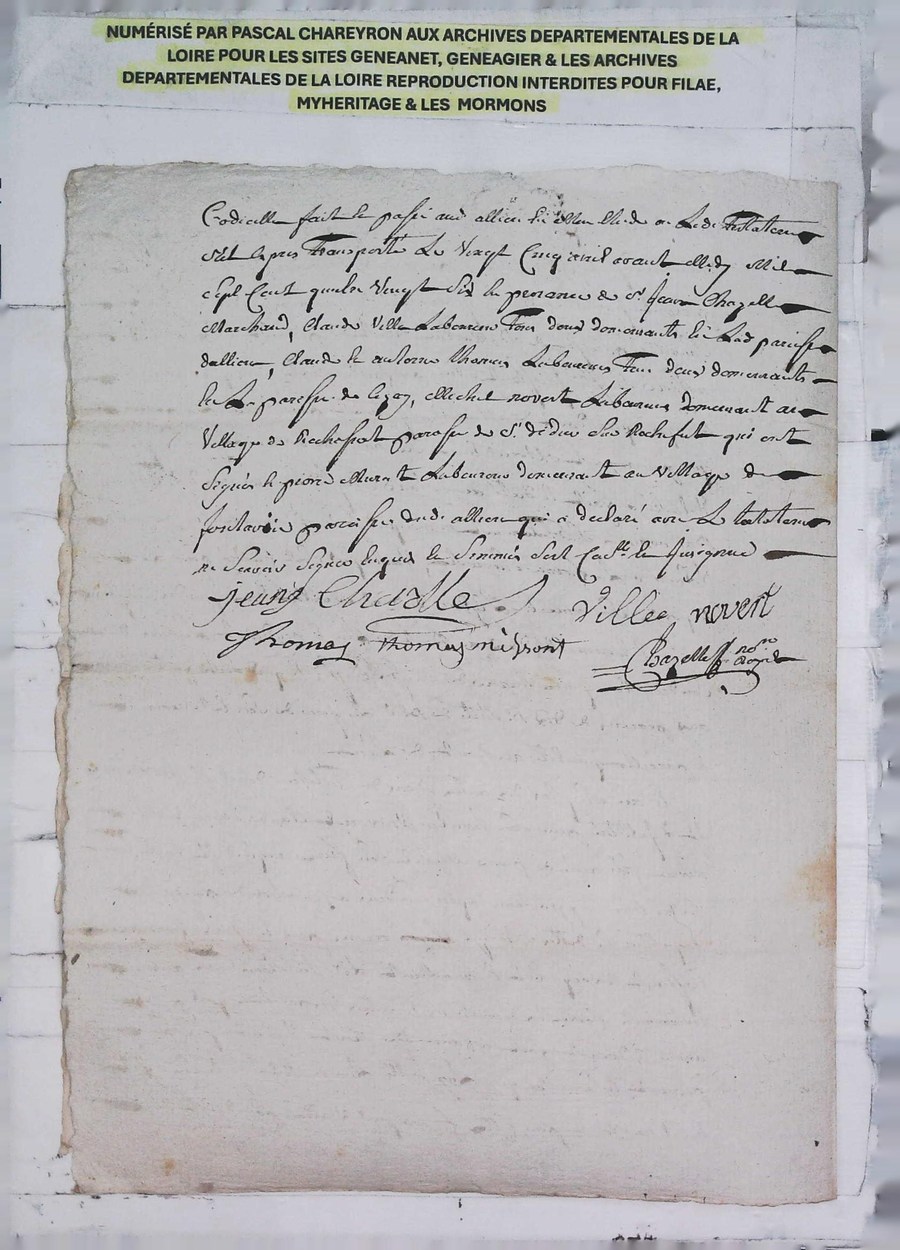 NUMÉRISÉ PAR PASCAL CHAREYRON AUX ARCHIVES DEPARTEMENTALES DE LA
LOIRE POUR LES SITES GENEANET, GENEAGIER & LES ARCHIVES
DEPARTEMENTALES DE LA LOIRE REPRODUCTION INTERDITES POUR FILAE,
MYHERITAGE & LES MORMONS
Codicille fait et passé aud allieu
transporté Le Vingt Cinq avril avant Midy Mil
Sept Cent quatre Vingt Six en presence de Sr. Jean Chazelle
Marchand, Claude Ville Laboureur Tous deux demeurants en Lad paroisse
dallieu, Claude et antoine thomas Laboureurs Tous deux demeurants
en La paroisse de , Michel novert Laboureur demeurant au
Village de Rochefort paroisse de St. didier Sur Rochefort qui ont
Signés et pierre Laboureur demeurant au Village de
paroisse dud allieu qui a declaré avec Le testateur
ne Scavoir Signer Enquis et Sommés
jean Chazelle Ville novert
Thomas thomas
Chazelle no.re Royal